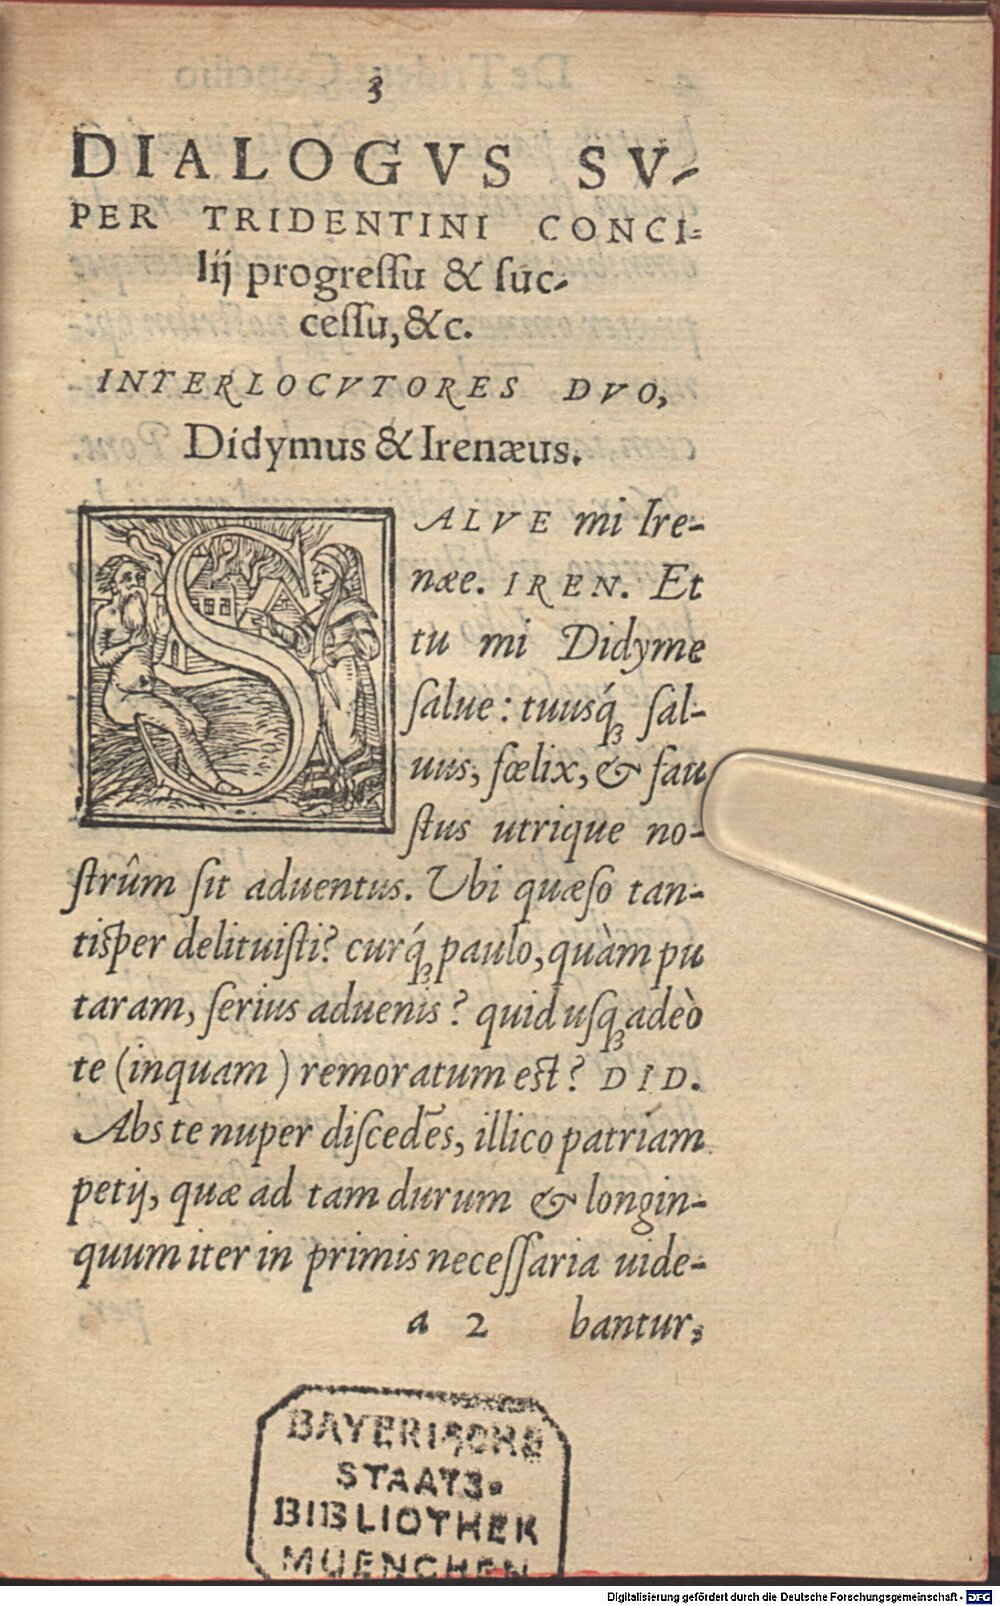 3
DIALOGVS SV-
PER TRIDENTINI CONCI-
lij progreſſu & ſuc-
ceſſu, &c.
INTERLOCVTORES DVO,
Didymus & Irenæus.
SALVE mi Ire-
næe. IREN. Et
tu mi Didyme
ſalue: tuusq́ꝫ ſal-
uus, fœlix, & fau
ſtus utrique no-
ſtrûm ſit aduentus. Ubi quæſo tan-
tiſper delituiſti? curq́ꝫ paulo, quàm pu
taram, ſerius aduenis? quid uſqꝫ adeò
te (inquam) remoratum eſt? DID.
Abs te nuper diſcedēs, illico patriam
petij, quæ ad tam durum & longin-
quum iter in primis neceſſaria uide-
a 2 bantur,
BAYERISCHE
STAATS-
BIBLIOTHEK
MUENCHEN
Digitalisierung gefördert durch die Deutsche Forschungsgemeinschaft - DFG